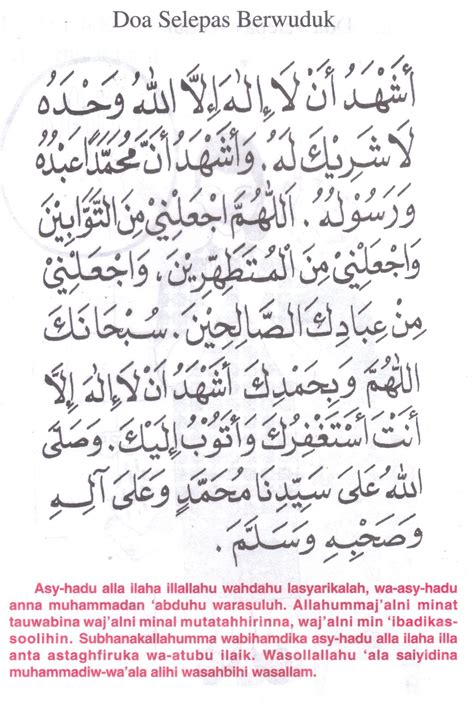 Doa Selepas Berwuduk
أَشْهَدُ أَنْ لَا إِلٰهَ إِلَّا اللّٰهُ وَحْدَهُ
لَا شَرِيْكَ لَهُ. وَأَشْهَدُ أَنَّ مُحَمَّدًا عَبْدُهُ
وَرَسُوْلُهُ. اَللّٰهُمَّ اجْعَلْنِيْ مِنَ التَّوَّابِيْنَ
وَاجْعَلْنِيْ مِنَ الْمُتَطَهِّرِيْنَ، وَاجْعَلْنِيْ
مِنْ عِبَادِكَ الصَّالِحِيْنَ. سُبْحَانَكَ
اللّٰهُمَّ وَبِحَمْدِكَ أَشْهَدُ أَنْ لَا إِلٰهَ إِلَّا
أَنْتَ أَسْتَغْفِرُكَ وَأَتُوْبُ إِلَيْكَ. وَصَلَّى
اللّٰهُ عَلَى سَيِّدِنَا مُحَمَّدٍ وَعَلَى آلِهِ
وَصَحْبِهِ وَسَلَّمَ.
Asy-hadu alla ilaha illallahu wahdahu lasyarikalah, wa-asy-hadu
anna muhammadan ‘abduhu warasuluh. Allahummaj’alni minat
tauwabina waj’alni minal mutatahhirinna, waj’alni min ‘ibadikas-
soolihin. Subhanakallahumma wabihamdika asy-hadu alla ilaha illa
anta astaghfiruka wa-atubu ilaik. Wasollallahu ‘ala saiyidina
muhammadiw-wa’ala alihi wasahbihi wasallam.